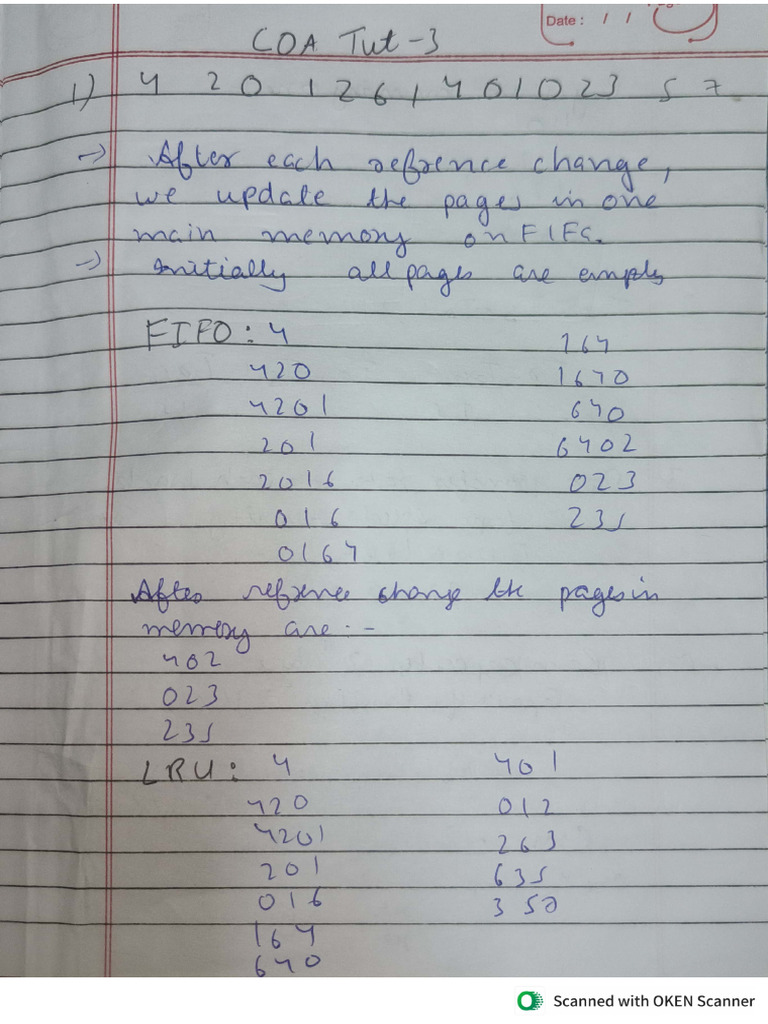 Date : / /
COA Tut-3
1) 4 2 0 1 2 6 1 4 0 1 0 2 3 5 7
→ After each refrence change,
we update the pages in one
main memory on FIFO.
→ Initially all pages are empty
FIFO : 4
420
4201
201
2016
016
0164
164
1640
640
6402
023
235
After refrence change the pages in
memory are :-
402
023
235
LRU : 4
420
4201
201
016
164
640
401
012
263
635
350
Scanned with OKEN Scanner